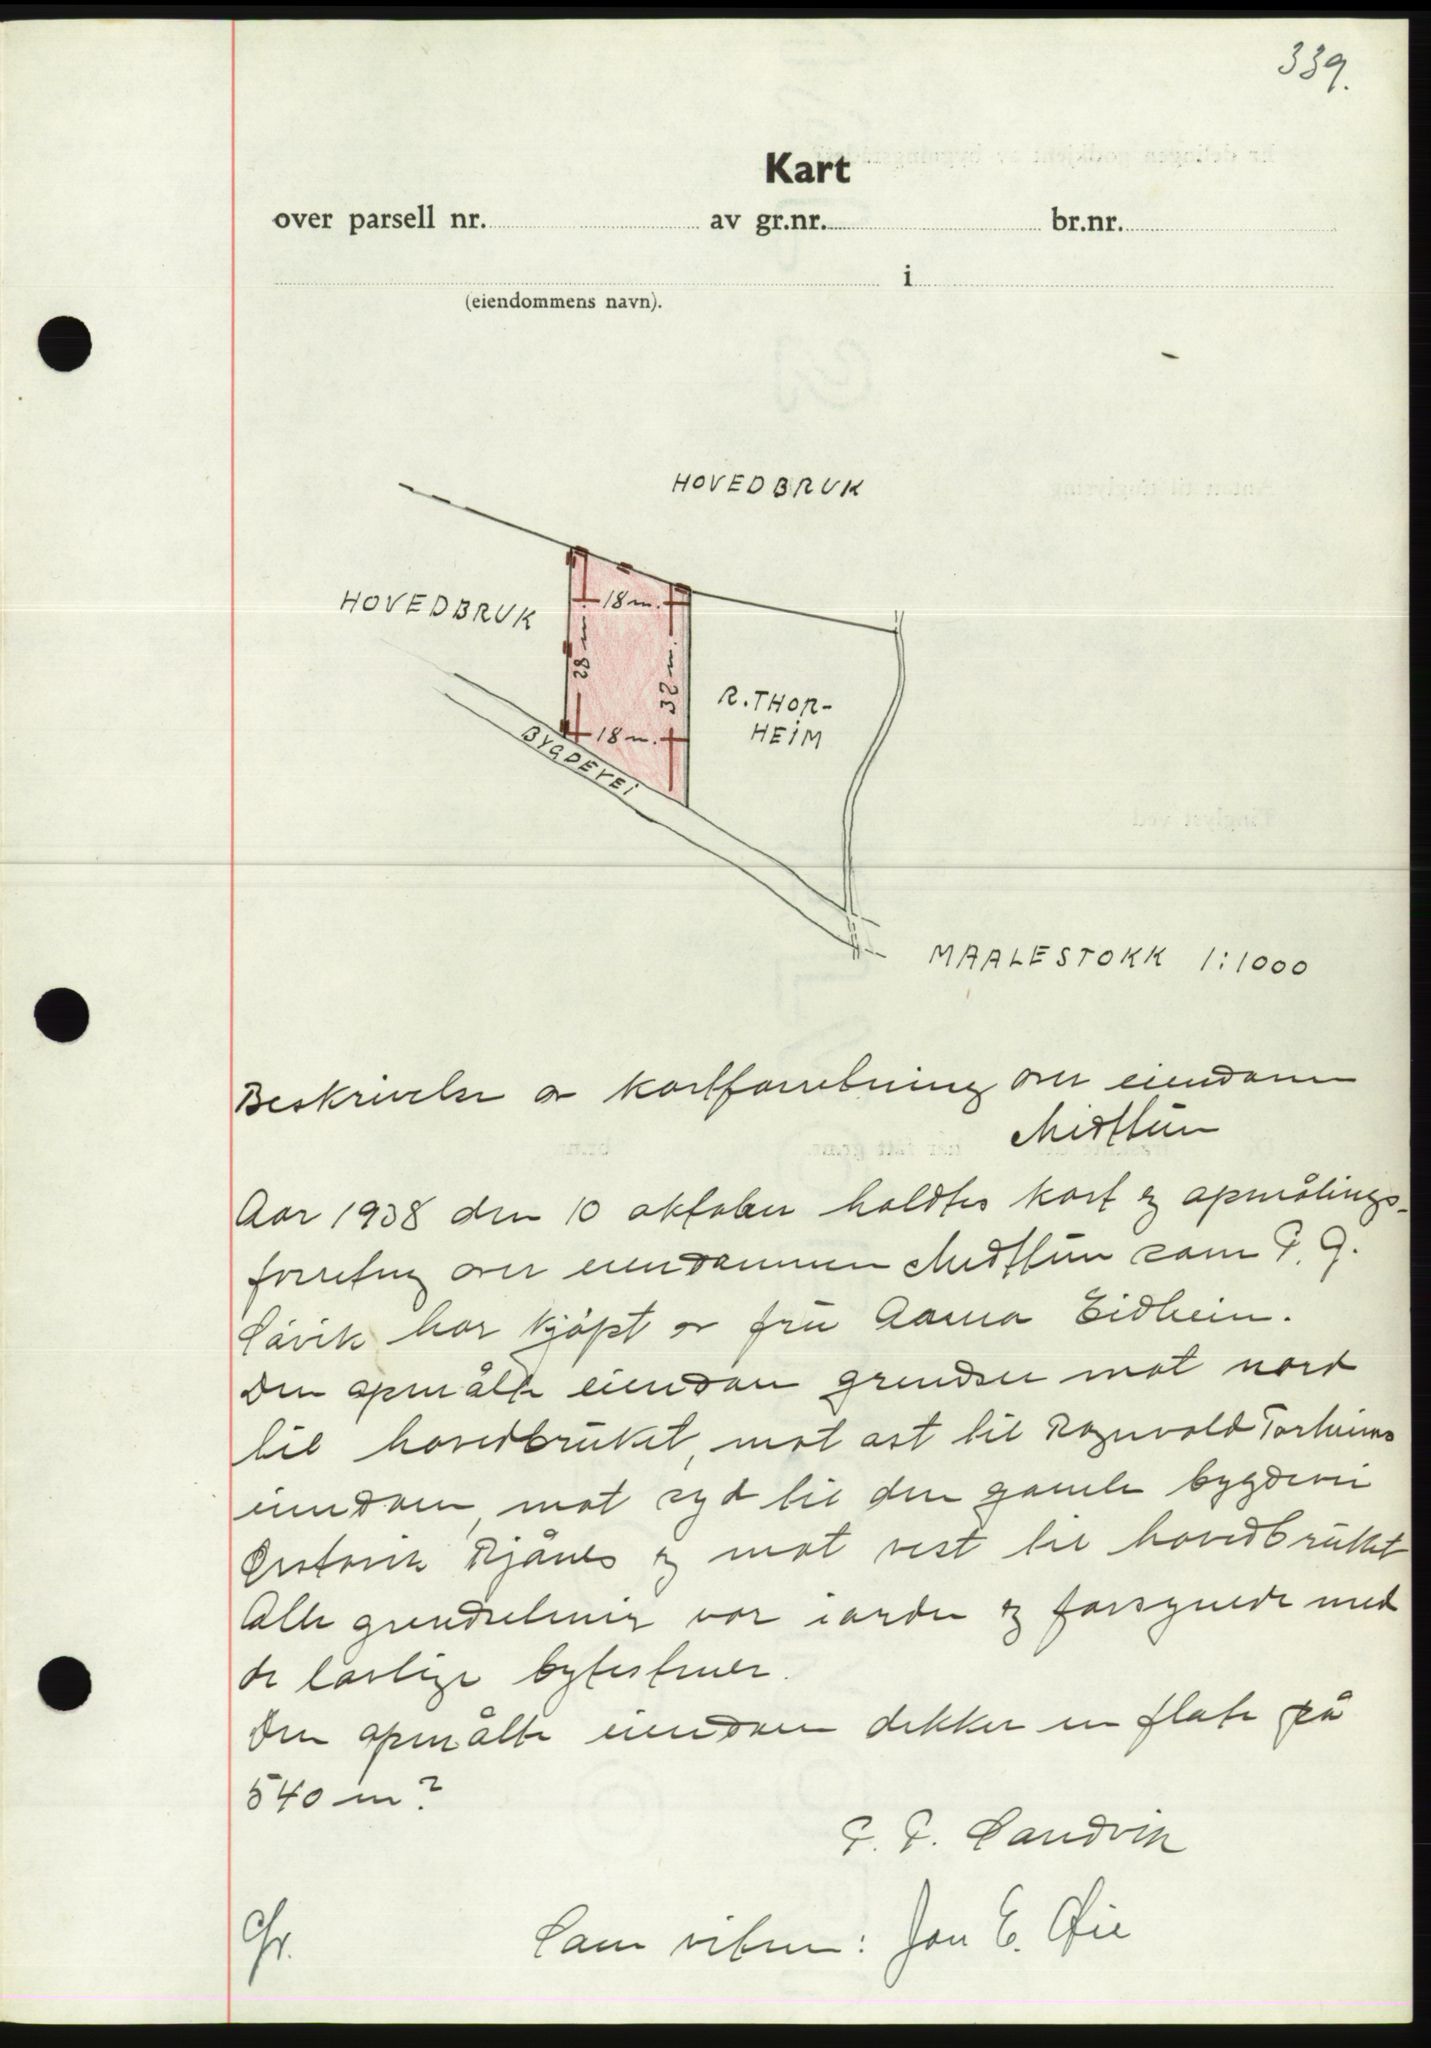 339.
Kart
over parsell nr. av gr.nr. br.nr.
i
(eiendommens navn).
HOVEDBRUK
HOVEDBRUK
18 m.
28 m.
32 m.
R. THOR-
HEIM
18 m.
BYGDEVEI
MAALESTOKK 1:1000
Beskrivelse av kartforretning over eiendom
Midttun
Aar 1938 den 10 oktober holdtes kart og opmålings-
forretng over eiendommen Midttun som P. J.
har kjöpt av fru Aasna Eidheim.
Den opmålte eiendom grendser mot nord
til hovedbruket, mot ost til Ragnvald Torheims
eiendom, mot syd til den gamle bygdevei
Örstavik og mot vest til hovedbruket
Alle var iorden og forsynede med
de lovlige bytestener.
Den opmålte eiendom dekker en flate på
540 m²
P. P. Sandvik
Som vitne: Jon E. Øie